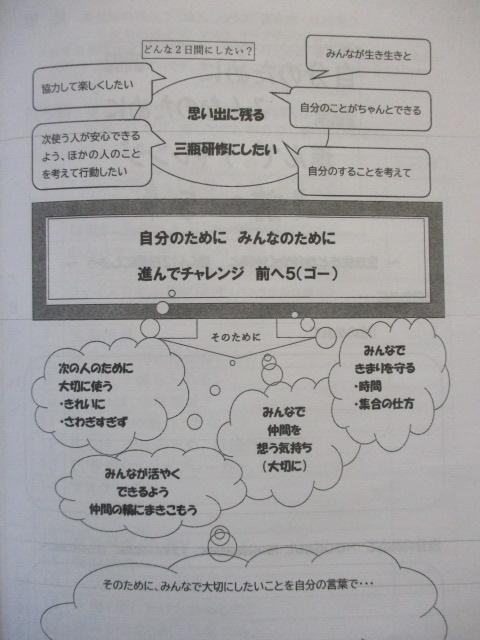 どんな２日間にしたい？
みんなが生き生きと
協力して楽しくしたい
思い出に残る
三瓶研修にしたい
自分のことがちゃんとできる
次使う人が安心できる
よう、ほかの人のこと
を考えて行動したい
自分のすることを考えて
自分のために　みんなのために
進んでチャレンジ　前へ５（ゴー）
そのために
次の人のために
大切に使う
・きれいに
・さわぎすぎず
みんなで
きまりを守る
・時間
・集合の仕方
みんなで
仲間を
想う気持ち
（大切に）
みんなが活やく
できるよう
仲間の輪にまきこもう
そのために、みんなで大切にしたいことを自分の言葉で・・・